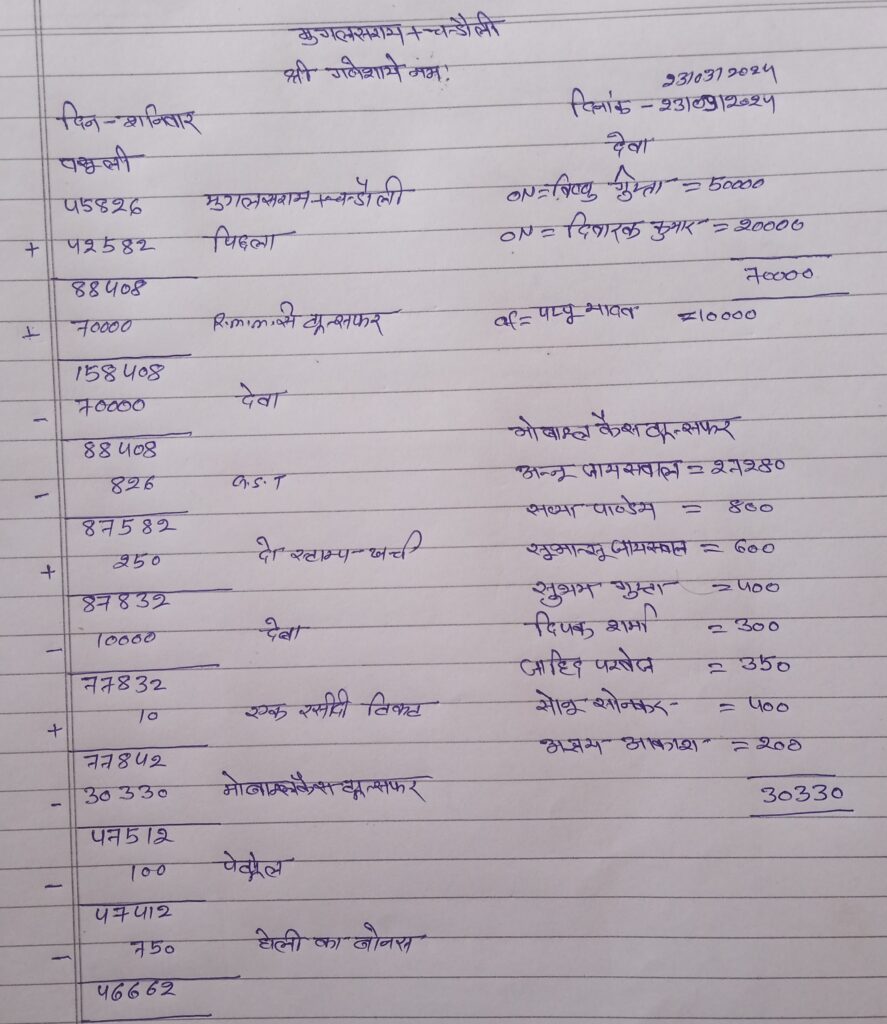 मुगलसराय + चन्डौली
श्री गणेशाये नमः
23/03/2024
दिन - शनिवार
दिनांक - 23/03/2024
वसूली
देवा
45826 मुगलसराय + चन्डौली
ON = विष्णु गुप्ता = 50000
+ 42582 पिछला
ON = दिवारक कुमार = 20000
88408
70000
+ 70000 R.m.m. से ट्रान्सफर
of = पप्पू भावत = 10000
158408
- 70000 देवा
88408
मोबाइल कैस ट्रान्सफर
- 826 G.S.T
अन्नू जायसवाल = 27280
87582
सत्या पाण्डेय = 800
+ 250 दो स्टाम्प खर्ची
सुभान्सू जायसवाल = 600
87832
सुभम गुप्ता = 400
- 10000 देवा
दिपक शर्मा = 300
77832
जाहिद परवेज = 350
+ 10 एक रसीदी टिकट
सोनू सोनकर = 400
77842
अभय आकाश = 200
- 30330 मोबाइल कैस ट्रान्सफर
30330
47512
- 100 पेट्रोल
47412
- 750 होली का बोनस
46662